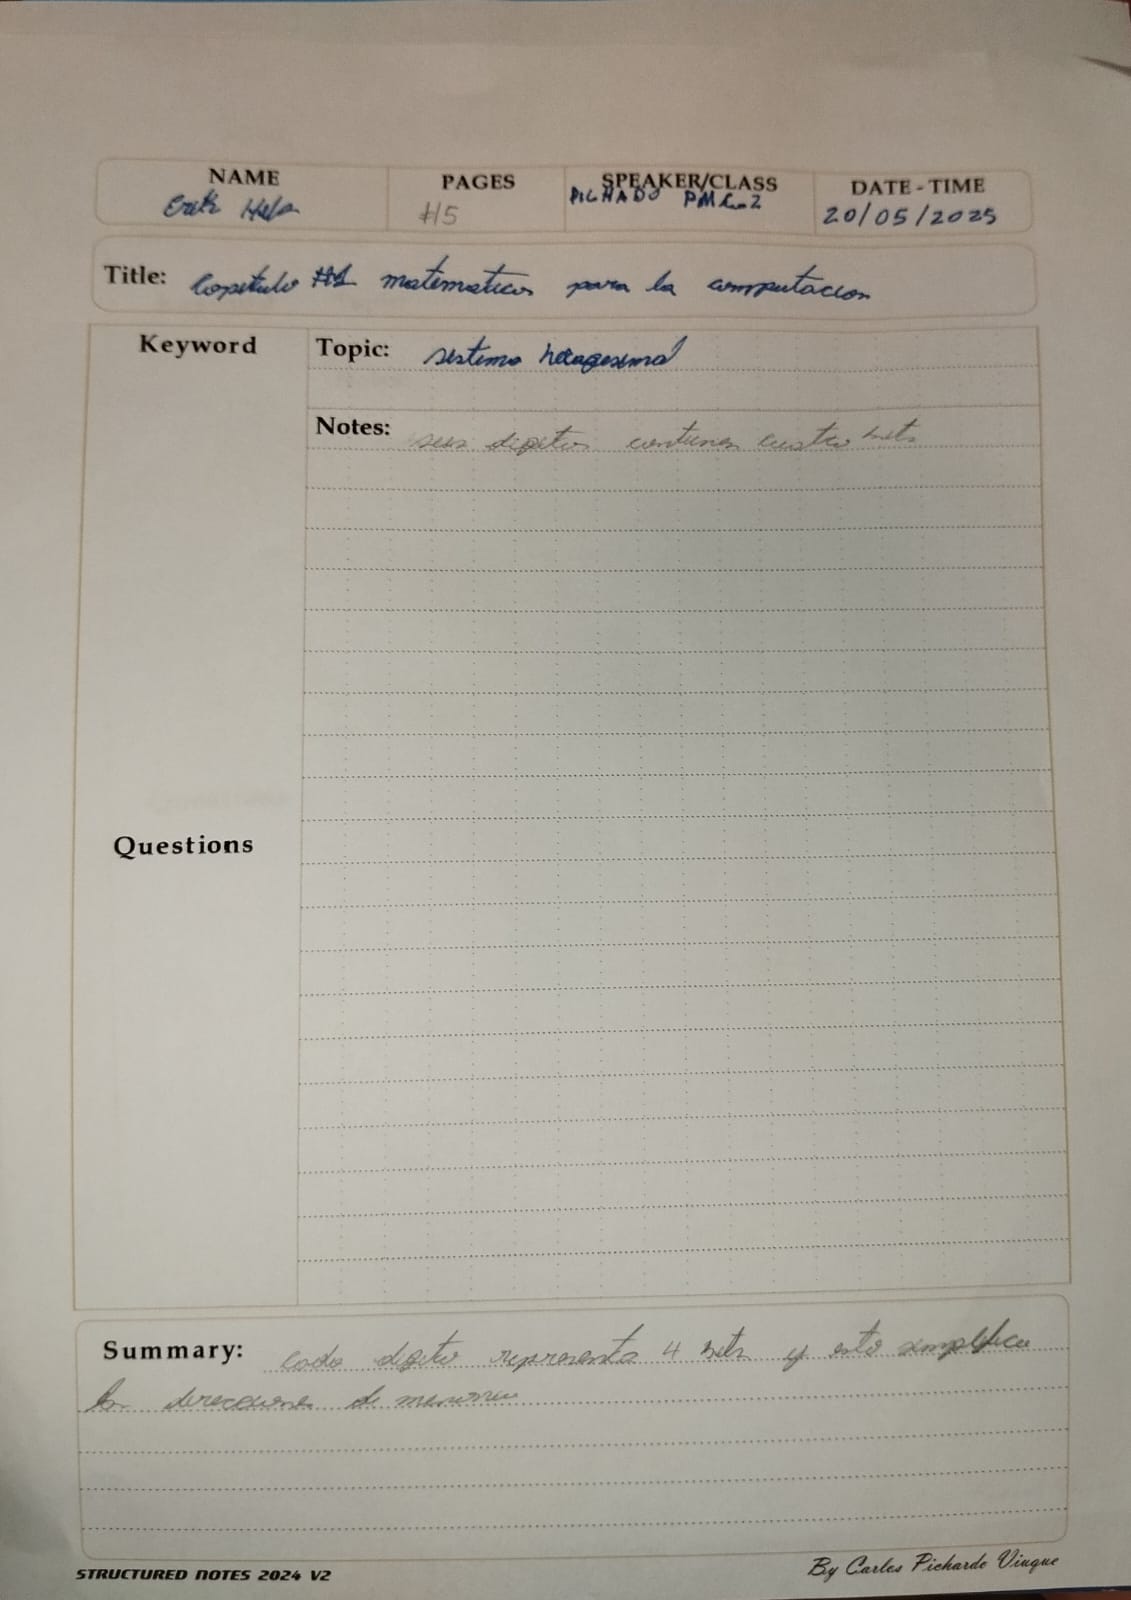 NAME
Erik
PAGES
#15
SPEAKER/CLASS
PICHADO PM
DATE - TIME
20/05/2025
Title: Capitulo #1 matematicas para la computacion
Keyword
Topic: sistema
Notes: sus digitos contienen cuatro bits
Questions
Summary: cada digito representa 4 bits y esto simplifica
las direcciones de memoria
STRUCTURED NOTES 2024 V2
By Carlos Pichardo Viuque